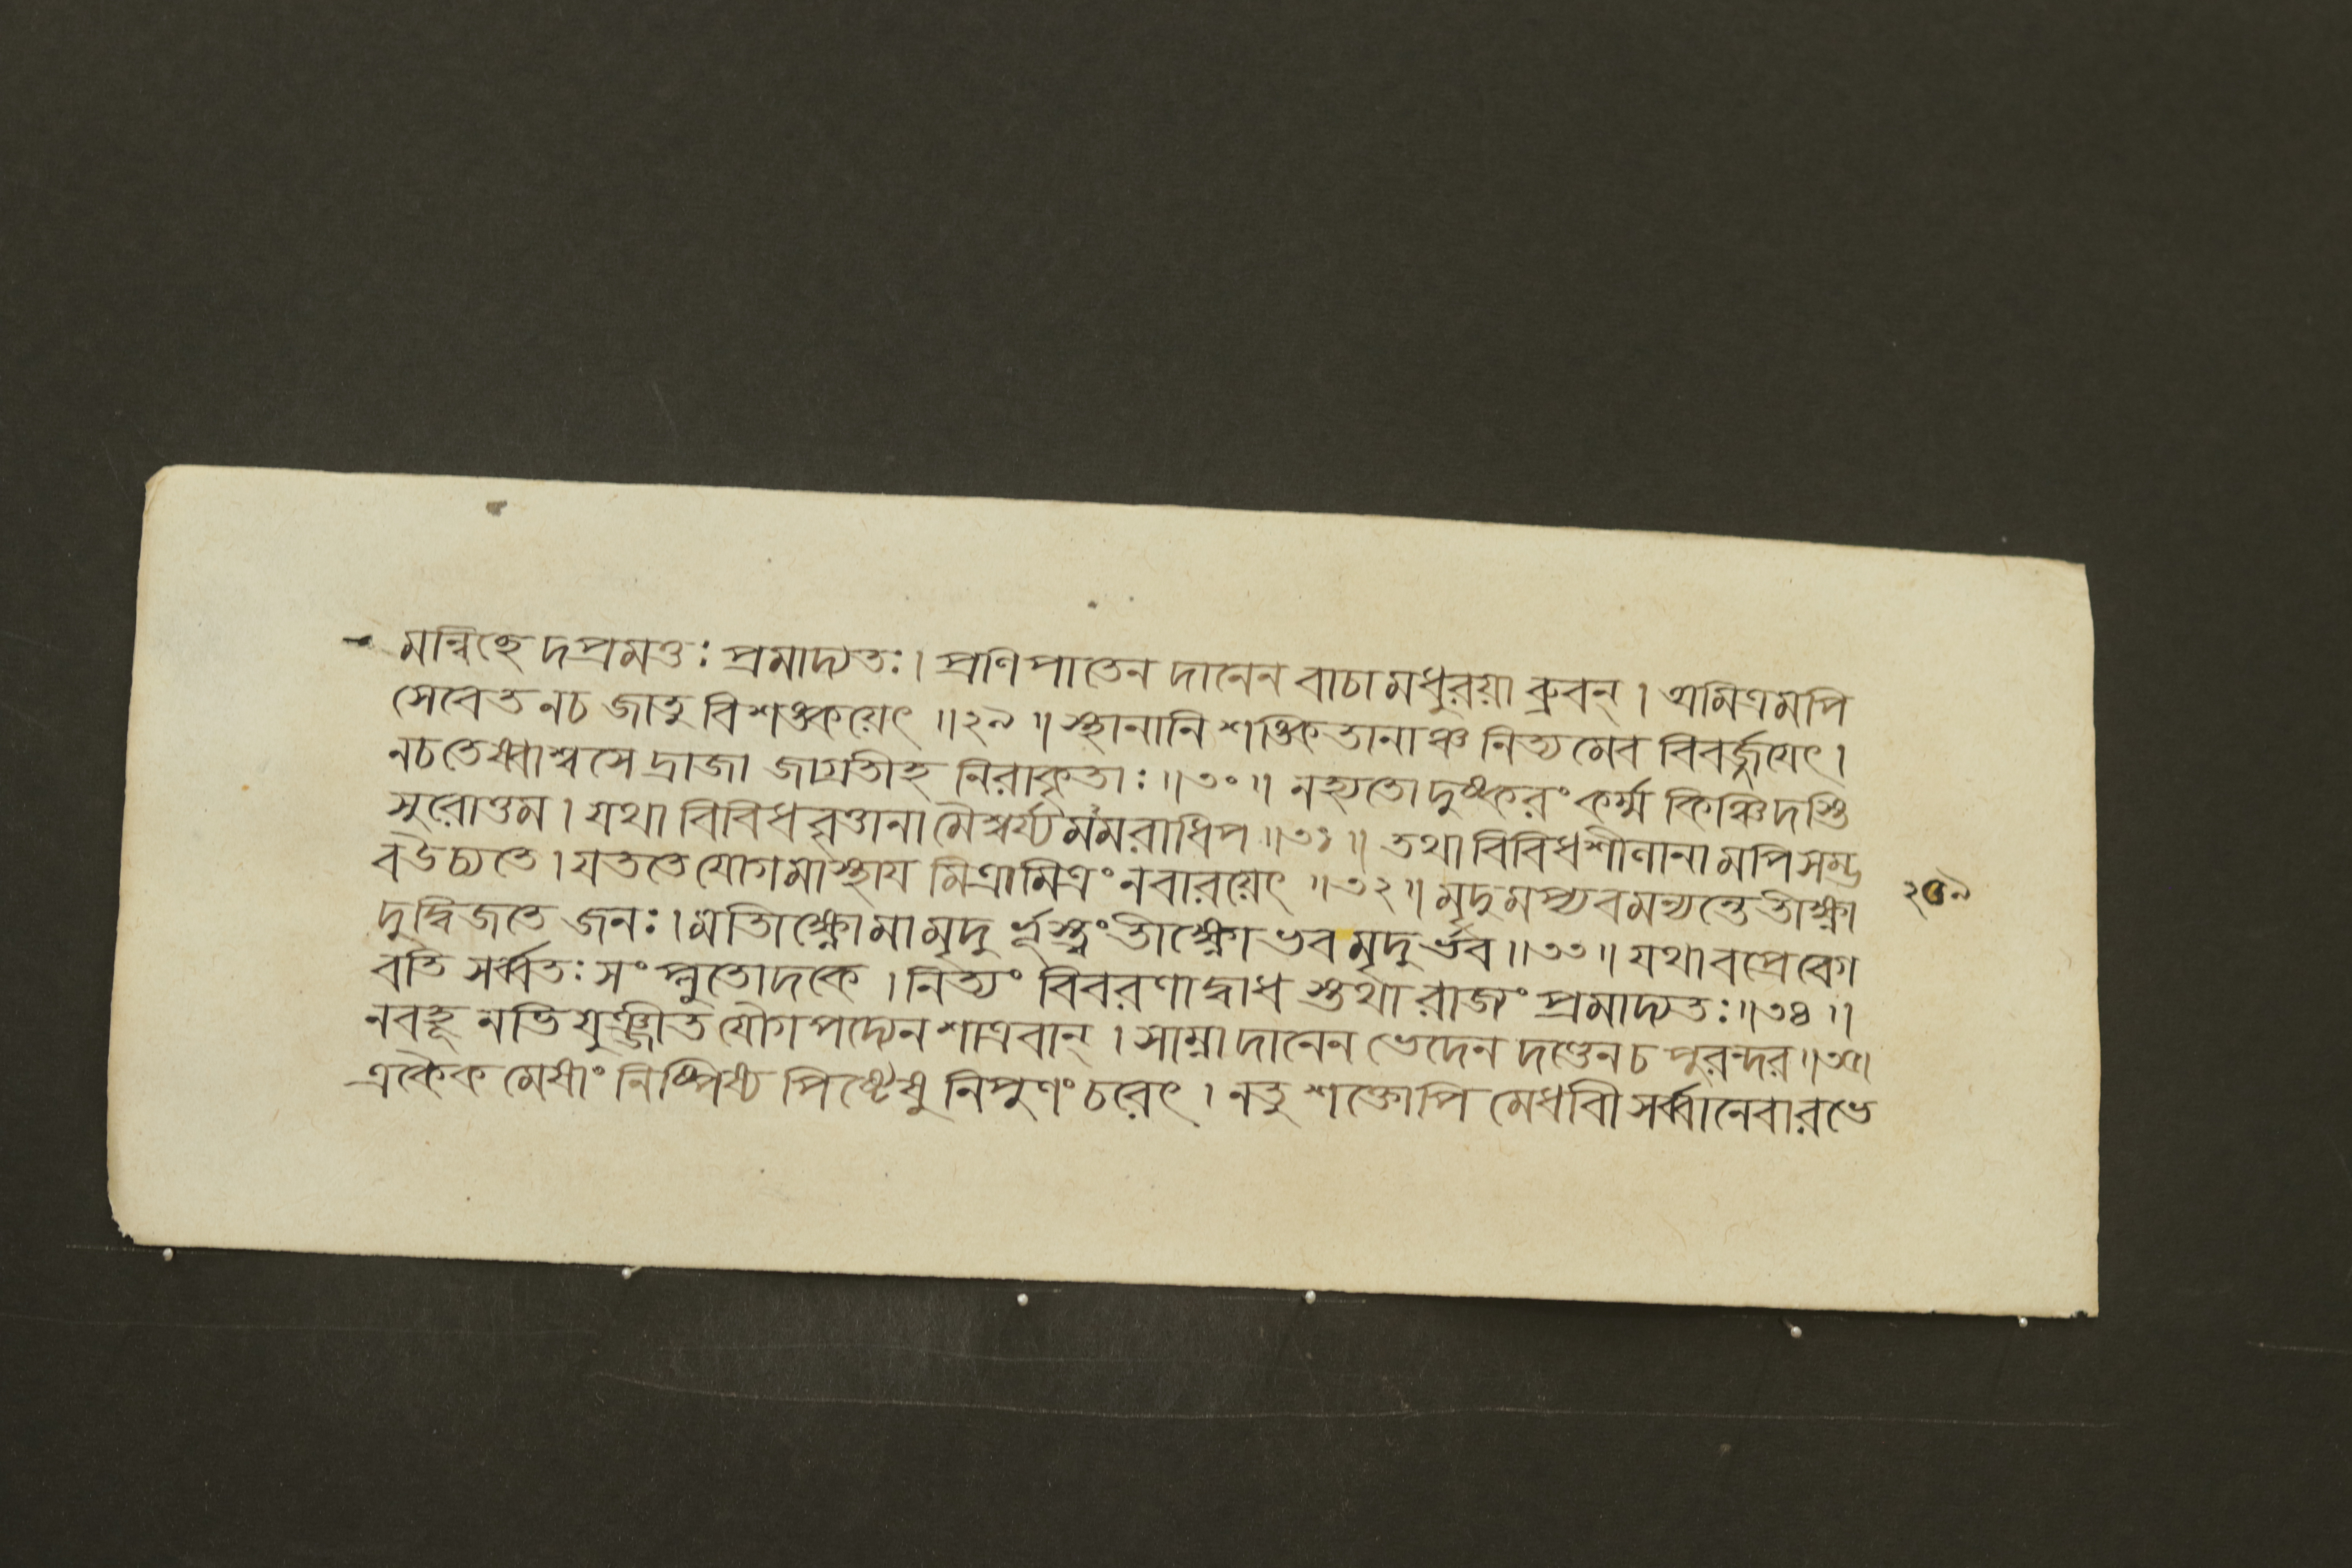 মন্বিচ্ছেদপ্রমত্তঃ প্রমাদ্যতঃ। প্রণিপাতেন দানেন বাচা মধুরয়া ব্রুবন্। অমিত্রমপি
সেবেত নচ জাতু বিশঙ্কয়েৎ ॥২৯॥ স্থানানি শঙ্কিতানাঞ্চ নিত্যমেব বিবর্জ্জযেৎ।
নচতেষ্বাশ্বসেদ্রাজা জাগ্রতীহ নিরাকৃতাঃ ॥৩০॥ নহ্যতো দুষ্করং কর্ম্ম কিঞ্চিদস্তি
সুরোত্তম। যথা বিবিধবৃত্তানামৈশ্বর্য্যমমরাধিপ ॥৩১॥ তথা বিবিধশীলানামপি সম্ভ
বউচ্যতে। যততে যোগমাস্থায মিত্রামিত্রং নবারয়েৎ ॥৩২॥ মৃদুমপ্যবমন্যন্তে তীক্ষ্ণা
দুদ্বিজতে জনঃ। মাতীক্ষ্ণোমামৃদুর্ভূস্ত্বং তীক্ষ্ণোভবমৃদুর্ভব ॥৩৩॥ যথা বপ্রে বেগ
বতি সর্ব্বতঃ সংপ্লুতোদকে। নিত্যং বিবরণাদ্বাধস্তথা রাজং প্রমাদ্যতঃ ॥৩৪॥
নবহূনভিযুঞ্জীত যৌগপদ্যেন শাত্রবান্। সাম্না দানেন ভেদেন দণ্ডেনচ পুরন্দর ॥৩৫॥
একৈকমেষাং নিষ্পিষ্য শিষ্টেষু নিপুণং চরেৎ। নতু শক্তোপি মেধাবী সর্ব্বানেবারভে